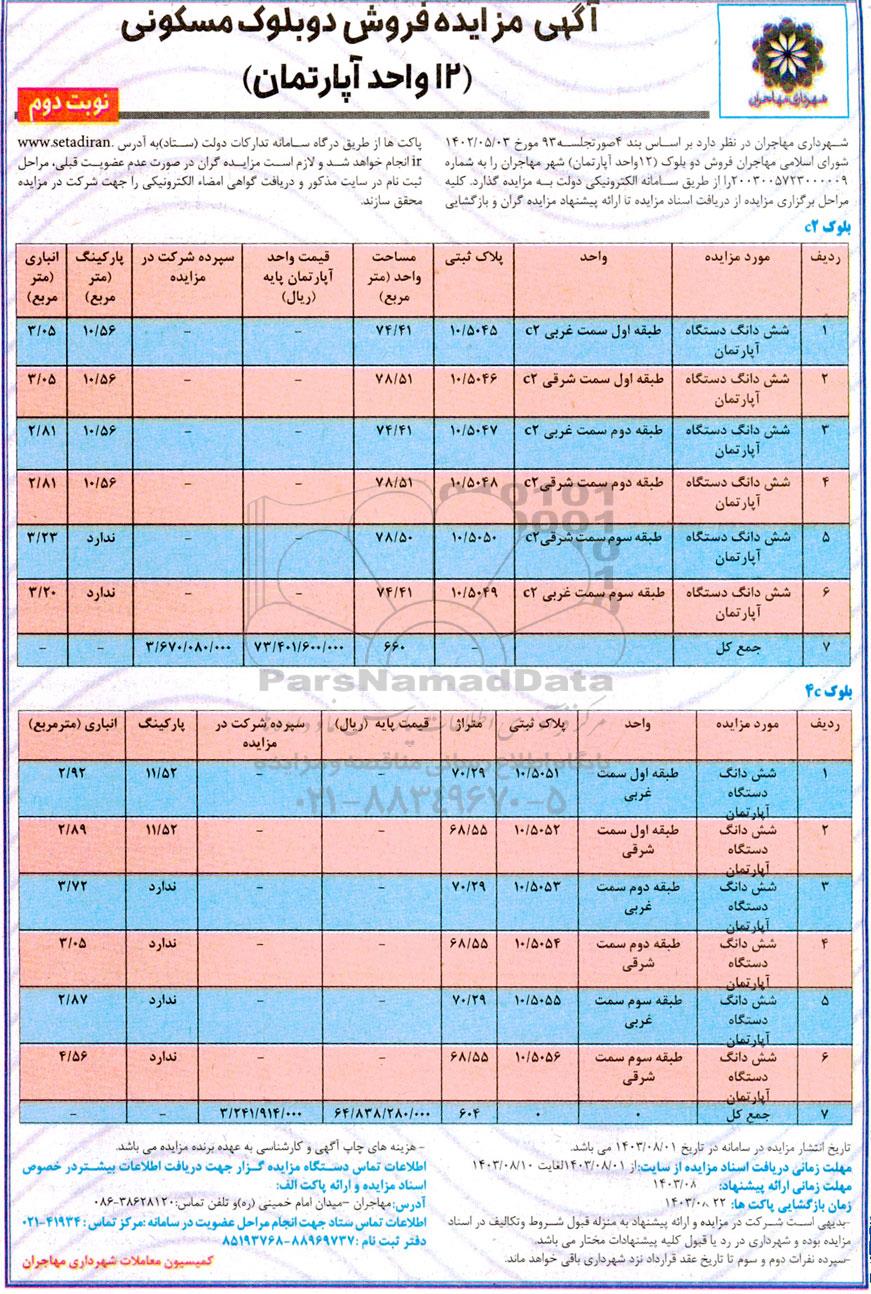 آگهی مزایده فروش دو بلوک مسکونی
(۱۲ واحد آپارتمان)
نوبت دوم
شهرداری مهاجران
شهرداری مهاجران در نظر دارد بر اساس بند ۴صورتجلسه۹۳ مورخ ۱۴۰۲/۰۵/۰۳
شورای اسلامی مهاجران فروش دو بلوک (۱۲واحد آپارتمان) شهر مهاجران را به شماره
۲۰۰۳۰۰۵۷۲۳۰۰۰۰۰۹را از طریق سامانه الکترونیکی دولت به مزایده گذارد. کلیه
مراحل برگزاری مزایده از دریافت اسناد مزایده تا ارائه پیشنهاد مزایده گران و بازگشایی
پاکت ها از طریق درگاه سامانه تدارکات دولت (ستاد)به آدرس www.setadiran.
ir انجام خواهد شد و لازم است مزایده گران در صورت عدم عضویت قبلی، مراحل
ثبت نام در سایت مذکور و دریافت گواهی امضاء الکترونیکی را جهت شرکت در مزایده
محقق سازند.
بلوک c۲
ردیف مورد مزایده واحد پلاک ثبتی مساحت واحد (متر مربع) قیمت واحد آپارتمان پایه (ریال) سپرده شرکت در مزایده پارکینگ (متر مربع) انباری (متر مربع)
۱ شش دانگ دستگاه آپارتمان طبقه اول سمت غربی c۲ ۱۰/۵۰۴۵ ۷۴/۴۱ - - ۱۰/۵۶ ۳/۰۵
۲ شش دانگ دستگاه آپارتمان طبقه اول سمت شرقی c۲ ۱۰/۵۰۴۶ ۷۸/۵۱ - - ۱۰/۵۶ ۳/۰۵
۳ شش دانگ دستگاه آپارتمان طبقه دوم سمت غربی c۲ ۱۰/۵۰۴۷ ۷۴/۴۱ - - ۱۰/۵۶ ۲/۸۱
۴ شش دانگ دستگاه آپارتمان طبقه دوم سمت شرقی c۲ ۱۰/۵۰۴۸ ۷۸/۵۱ - - ۱۰/۵۶ ۲/۸۱
۵ شش دانگ دستگاه آپارتمان طبقه سوم سمت شرقی c۲ ۱۰/۵۰۵۰ ۷۸/۵۰ - - ندارد ۳/۲۳
۶ شش دانگ دستگاه آپارتمان طبقه سوم سمت غربی c۲ ۱۰/۵۰۴۹ ۷۴/۴۱ - - ندارد ۳/۲۰
۷ جمع کل - ۶۶۰ ۷۳/۴۰۱/۶۰۰/۰۰۰ ۳/۶۷۰/۰۸۰/۰۰۰ - -
ParsNamadData
بلوک ۴c
ردیف مورد مزایده واحد پلاک ثبتی متراژ قیمت پایه (ریال) سپرده شرکت در مزایده پارکینگ انباری (مترمربع)
پایگاه اطلاع رسانی مناقصه و مزایده
۰۲۱-۸۸۳۴۹۶۷۰-۵
۱ شش دانگ دستگاه آپارتمان طبقه اول سمت غربی ۱۰/۵۰۵۱ ۷۰/۲۹ - - ۱۱/۵۲ ۲/۹۲
۲ شش دانگ دستگاه آپارتمان طبقه اول سمت شرقی ۱۰/۵۰۵۲ ۶۸/۵۵ - - ۱۱/۵۲ ۲/۸۹
۳ شش دانگ دستگاه آپارتمان طبقه دوم سمت غربی ۱۰/۵۰۵۳ ۷۰/۲۹ - - ندارد ۳/۷۲
۴ شش دانگ دستگاه آپارتمان طبقه دوم سمت شرقی ۱۰/۵۰۵۴ ۶۸/۵۵ - - ندارد ۳/۰۵
۵ شش دانگ دستگاه آپارتمان طبقه سوم سمت غربی ۱۰/۵۰۵۵ ۷۰/۲۹ - - ندارد ۲/۸۷
۶ شش دانگ دستگاه آپارتمان طبقه سوم سمت شرقی ۱۰/۵۰۵۶ ۶۸/۵۵ - - ندارد ۴/۵۶
۷ جمع کل ۰ ۰ ۶۰۴ ۶۴/۸۳۸/۲۸۰/۰۰۰ ۳/۲۴۱/۹۱۴/۰۰۰ - -
تاریخ انتشار مزایده در سامانه در تاریخ ۱۴۰۳/۰۸/۰۱ می باشد.
مهلت زمانی دریافت اسناد مزایده از سایت:از ۱۴۰۳/۰۸/۰۱لغایت ۱۴۰۳/۰۸/۱۰
مهلت زمانی ارائه پیشنهاد: ۱۴۰۳/۰۸
زمان بازگشایی پاکت ها: ۱۴۰۳/۰۸ ۲۲
-بدیهی است شرکت در مزایده و ارائه پیشنهاد به منزله قبول شروط وتکالیف در اسناد
مزایده بوده و شهرداری در رد یا قبول کلیه پیشنهادات مختار می باشد.
-سپرده نفرات دوم و سوم تا تاریخ عقد قرارداد نزد شهرداری باقی خواهد ماند.
- هزینه های چاپ آگهی و کارشناسی به عهده برنده مزایده می باشد.
اطلاعات تماس دستگاه مزایده گزار جهت دریافت اطلاعات بیشتردر خصوص
اسناد مزایده و ارائه پاکت الف:
آدرس:مهاجران -میدان امام خمینی (ره)و تلفن تماس:۳۸۶۲۸۱۲۰-۰۸۶
اطلاعات تماس ستاد جهت انجام مراحل عضویت در سامانه :مرکز تماس : ۴۱۹۳۴-۰۲۱
دفتر ثبت نام :۸۸۹۶۹۷۳۷-۸۵۱۹۳۷۶۸
کمیسیون معاملات شهرداری مهاجران